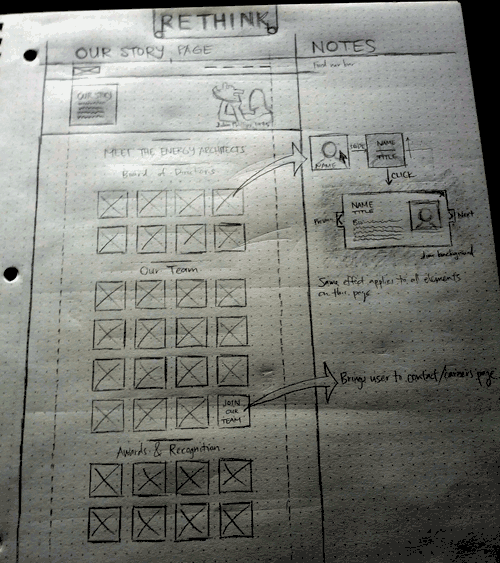 RETHINK
OUR STORY PAGE
NOTES
OUR STORY
MEET THE ENERGY ARCHITECTS
Board of Directors
Our Team
JOIN
OUR
TEAM
Awards & Recognition
NAME
NAME
TITLE
CLICK
NAME
TITLE
Bio
Next
dim background
Same effect applies to all elements
on this page
Brings user to contact/careers page